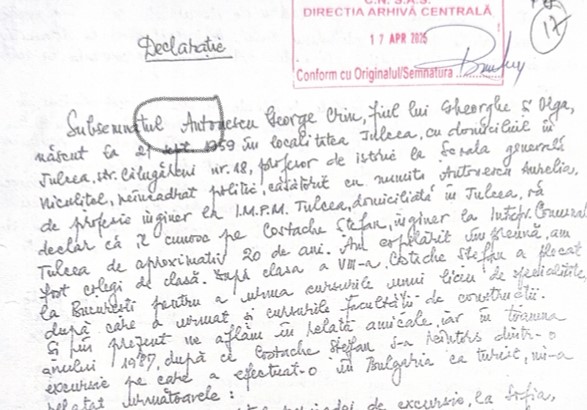 C.N. S.A.S.
DIRECȚIA ARHIVĂ CENTRALĂ
17 APR 2025
Conform cu Originalul/Semnătura
17
Declarație
Subsemnatul Antonescu George Crin, fiul lui Gheorghe și Olga,
născut la 21 sept. 1959 în localitatea Tulcea, cu domiciliul în
Tulcea, str. Călugăreni nr. 18, profesor de istorie la Școala generală
Niculițel, neîncadrat politic, căsătorit cu numita Antonescu Aurelia,
de profesie inginer la I.M.P.M. Tulcea, domiciliată în Tulcea,
declar că îl cunosc pe Costache Ștefan, inginer la Intrepr.
Tulcea de aproximativ 20 de ani. Am copilărit împreună, am
fost colegi de clasă. După clasa a VIII-a Costache Ștefan a plecat
la București pentru a urma cursurile unui liceu de specialitate,
după care a urmat și cursurile facultății de construcții.
Și în prezent ne aflăm în relații amicale, iar în toamna
anului 1987, după ce Costache Ștefan s-a reîntors dintr-o
excursie pe care a efectuat-o în Bulgaria ca turist, mi-a
relatat următoarele:
de excursie, la Sofia,